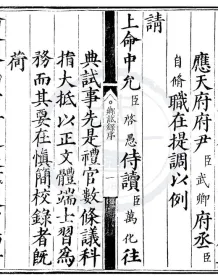 應天府府尹臣武卿府丞臣
自脩職在提調以例
請
上命中允臣啓愚侍讀臣萬化往
典試事先是禮官數條議科
指大抵以正文體端士習為
務而其要在慎簡校錄者既
荷